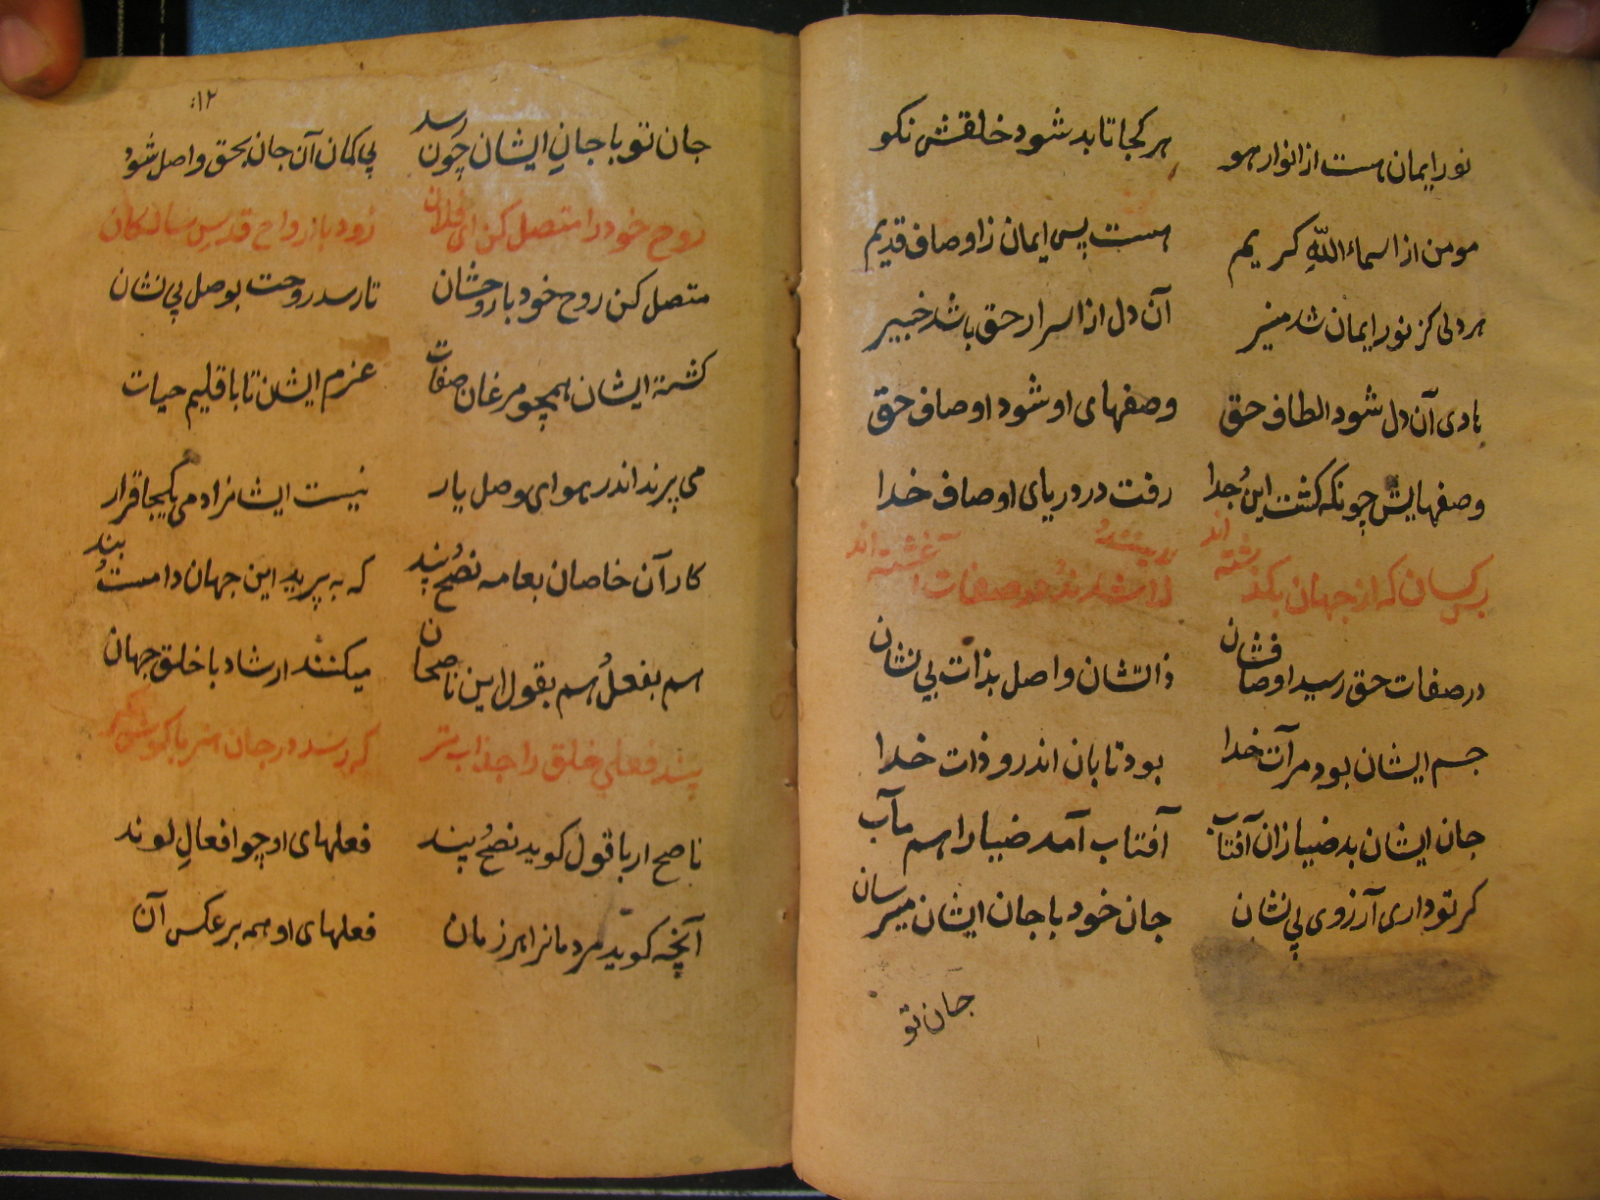 نور ایمان هست از انوار هو    هر کجا تابد شود خلقش نکو
مومن از اسماء اللهِ کریم    هست پس ایمان ز اوصاف قدیم
هر دلی کز نور ایمان شد منیر    آن دل از اسرار حق باشد خبیر
هادی آن دل شود الطاف حق    وصفهای او شود اوصاف حق
وصفهایش چونکه کشت این جدا    رفت در دریای اوصاف خدا
پس کسان که از جهان بکذشته اند    در صفات آغشته اند
در صفات حق رسید اوصافشان    ذاتشان واصل بذات بی نشان
جسم ایشان بود مرآت خدا    بود تابان اندرو ذات خدا
جان ایشان بد ضیا زان آفتاب    آفتاب آمد ضیا را هم مآب
کر تو داری آرزوی بی نشان    جان خود با جان ایشان میرسان
جان تو
۱۲
جان تو با جانِ ایشان چون رسد    بی کمان آن جان بحق واصل شود
روح خود را متصل کن ای فلان    زود با ارواح قدس سالکان
متصل کن روح خود با روحشان    تا رسد روحت بوصل بی نشان
کشتهٔ ایشان همچو مرغان صفات    عزم ایشان تا باقلیم حیات
می پرند اندر هوای وصل یار    نیست ایشانرا دمی یکجا قرار
کار آن خاصان بعامه نصح پند    که به پرید این جهان دامست بند
هم بفعل هم بقول این ناصحان    میکنند ارشاد با خلق جهان
پند فعلی خلق را جذاب تر    که رسد در جان هر با کوش کر
ناصح ار با قول کوید نصح پند    فعلهای او چو افعالِ لوند
آنچه کوید مردمانرا هر زمان    فعلهای او همه بر عکس آن